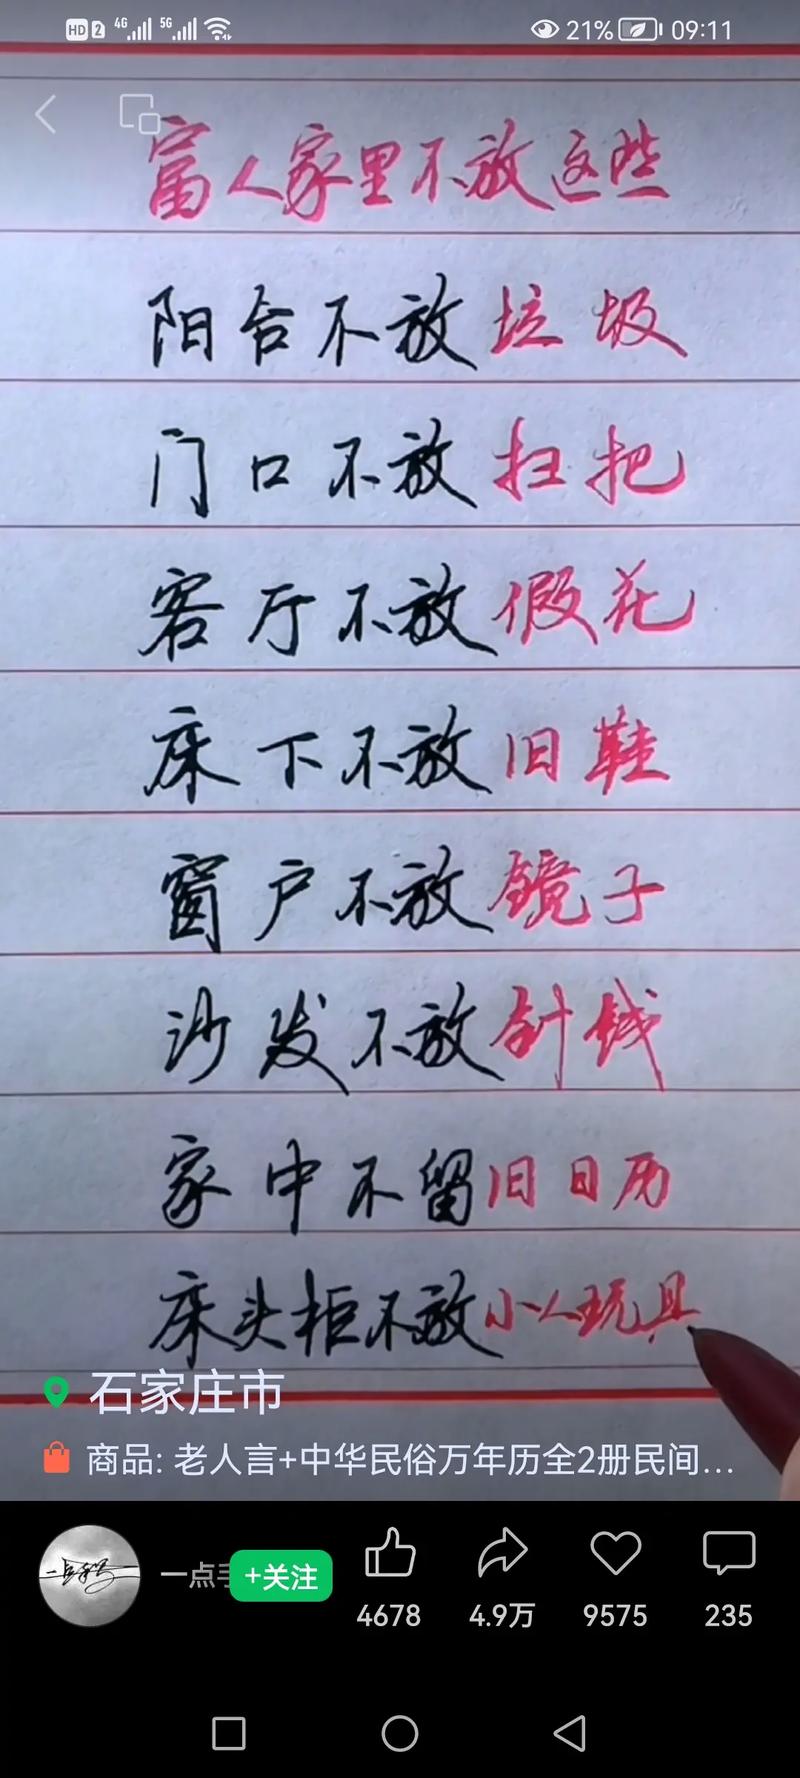 HD 2 4G 5G 21% 09:11
富人家里不放这些
阳台不放垃圾
门口不放扫把
客厅不放假花
床下不放旧鞋
窗户不放镜子
沙发不放针线
家中不留旧日历
床头柜不放小人玩具
石家庄市
商品: 老人言+中华民俗万年历全2册民间...
一点手
+关注
4678 4.9万 9575 235